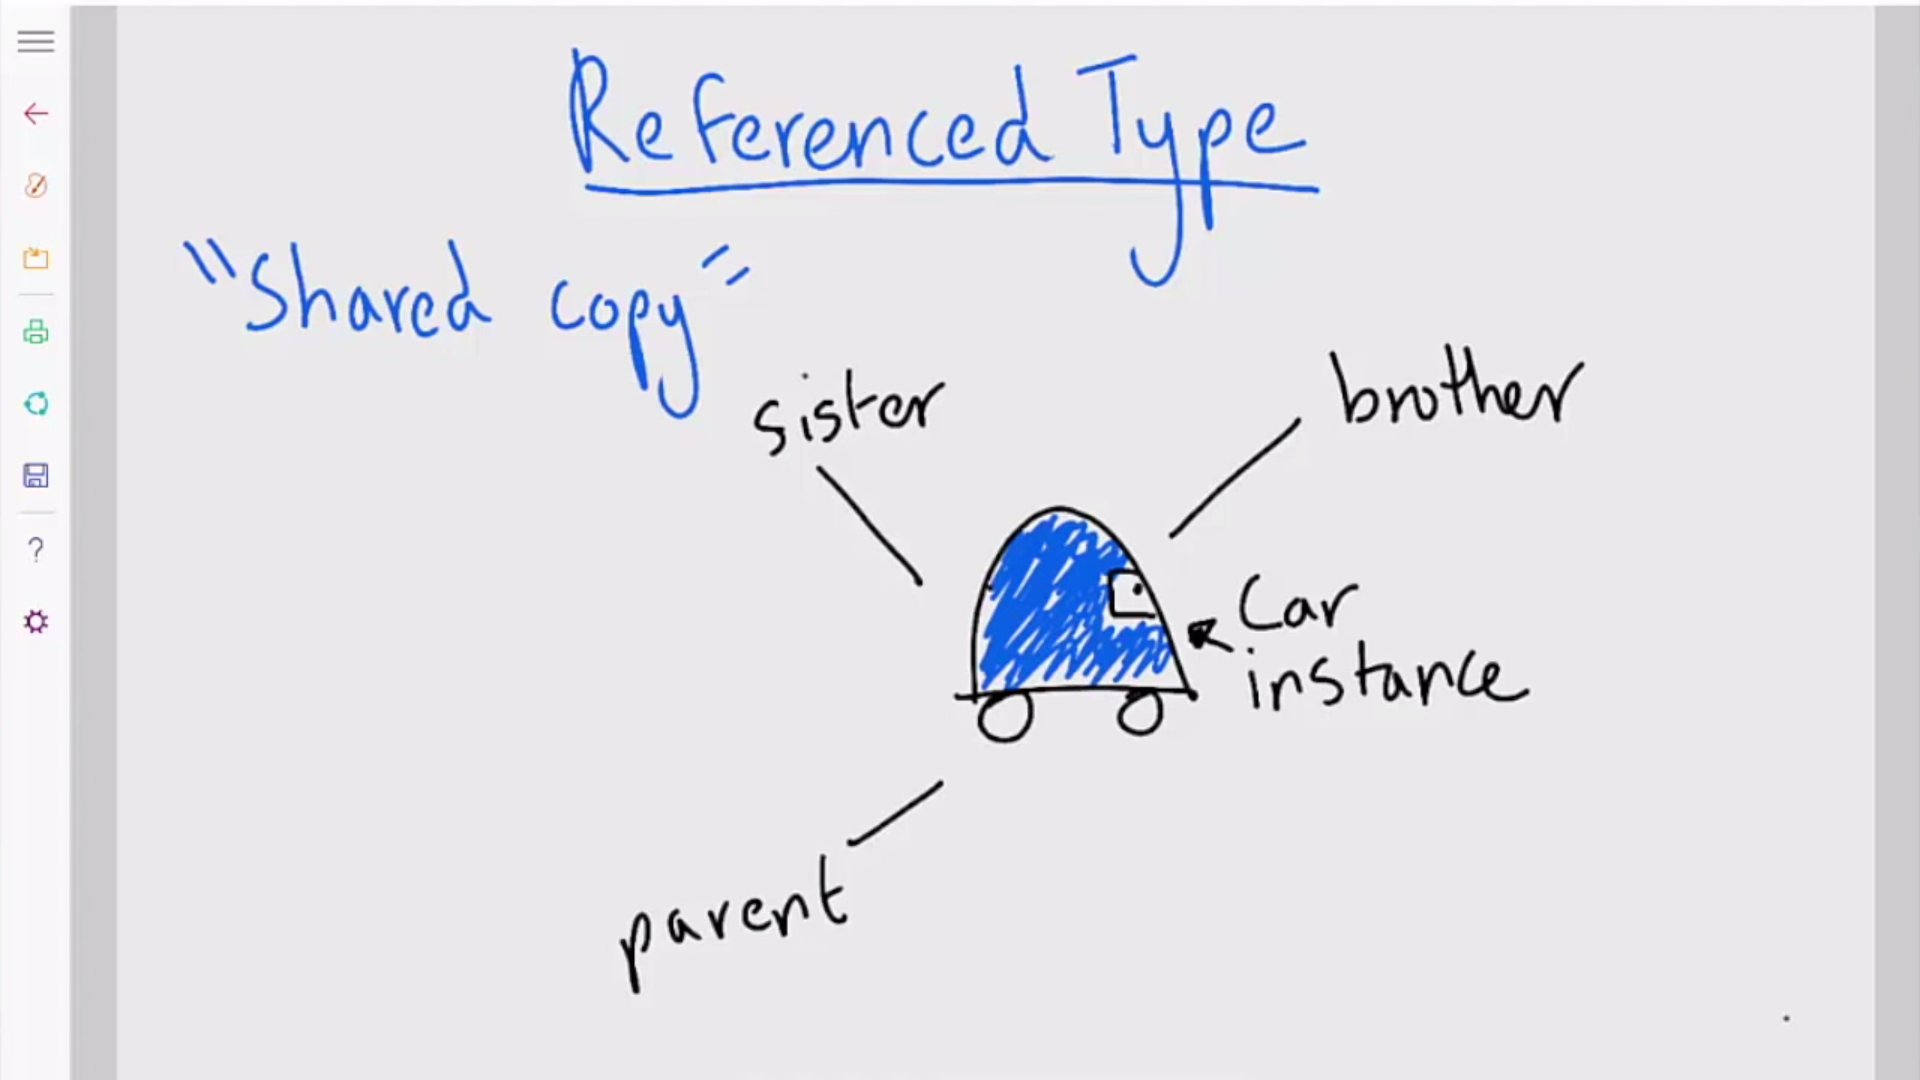 Referenced Type
"Shared copy"
sister
brother
Car
instance
parent
?